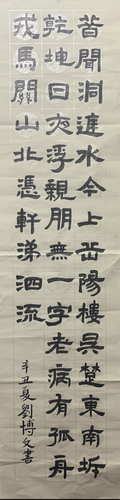 昔聞洞庭水今上岳陽樓吳楚東南坼
乾坤日夜浮親朋無一字老病有孤舟
戎馬關山北憑軒涕泗流
辛丑夏劉博文書